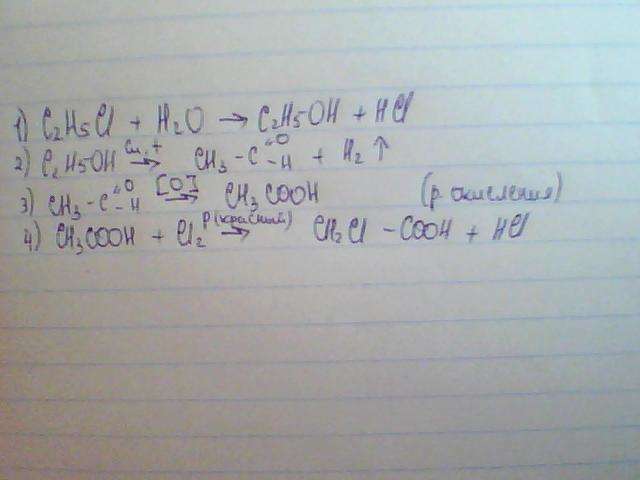 1) C₂H₅Cl + H₂O → C₂H₅OH + HCl
2) C₂H₅OH Cu, t → CH₃ - C =O - H + H₂ ↑
3) CH₃ - C =O - H [O] → CH₃COOH (р. окисления)
4) CH₃COOH + Cl₂ P(красный) → CH₂Cl - COOH + HCl